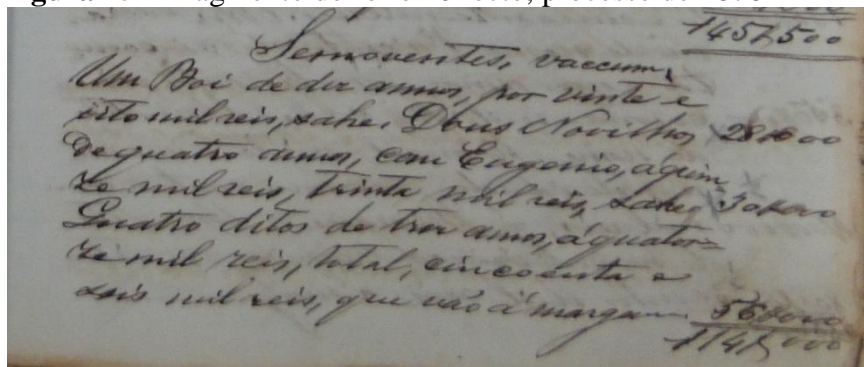 145$500
Semoventes, vaccum,
Um Boi de dez annos, por vinte e
oito mil reis, sahe. Dous Novilhos 28$000
de quatro annos, com Eugenio, á quin
ze mil reis, trinta mil reis, sahe. 30$000
Quatro ditos de tres annos, á quator=
ze mil reis, total, cincoenta e
seis mil reis, que vão á margem 56$000
114$000